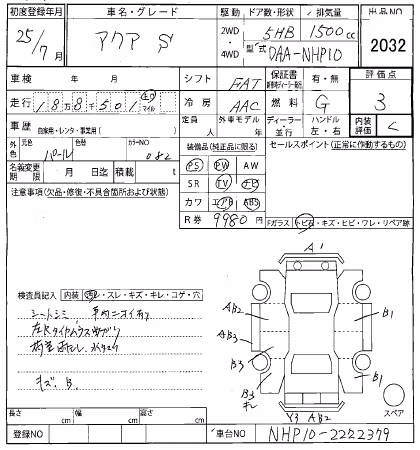 初度登録年月 車名・グレード 駆動 ドア数・形状 排気量 出品NO
25/7月 アクア S 2WD・4WD 5HB 1500cc 2032
型式 DAA-NHP10
車検 年 月 シフト FAT 保証書 有・無 評価点
走行 188千501 km マイル 冷房 AAC 燃料 G 3
車歴 自家用・レンタ・事業用( ) 定員 人 外車モデル 年 ディーラー・並行 ハンドル 左・右 内装評価 C
元色 パール 色替 カラーNO 082 装備品(純正品に限る) セールスポイント(正常に作動するもの)
名義変更期限 月 日迄 積載 t PS PW AW
注意事項(欠品・修復・不具合箇所および状態) SR TV ナビ
カワ エアB ABS
R券 9980円 Fガラス トビ石・キズ・ヒビ・ワレ・リペア跡
A1
検査員記入 内装 ヨゴレ・スレ・キズ・キレ・コゲ・穴
シートシミ 車内ニオイ有
AB2
AB3
B3
B1
キズ、B
B1
B3
Y3 AB2
スペア
長さ cm 幅 cm 高さ cm
登録NO 車台NO NHP10-2222379